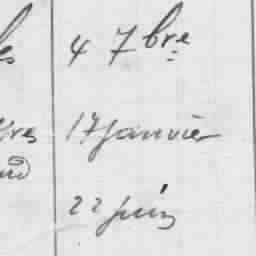 4 7bre
17 janvier
22 juin